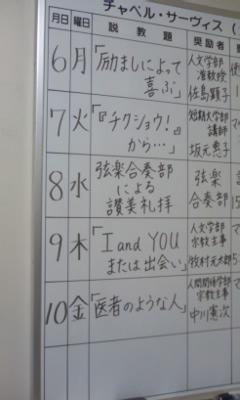 チャペル・サーヴィス (
月日 曜日 説教題 奨励者
6 月 「励ましによって
喜ぶ」
人文学部
准教授
佐島顕子
7 火 「『チクショウ!』
から…」
短期大学部
講師
坂元恵子
8 水 弦楽合奏部
による
讃美礼拝
弦楽
合奏部
9 木 「I and YOU
または出会い」
人文学部
宗教主事
牧村元太郎
10 金 「医者のような人」
人間関係学部
宗教主事
中川憲次